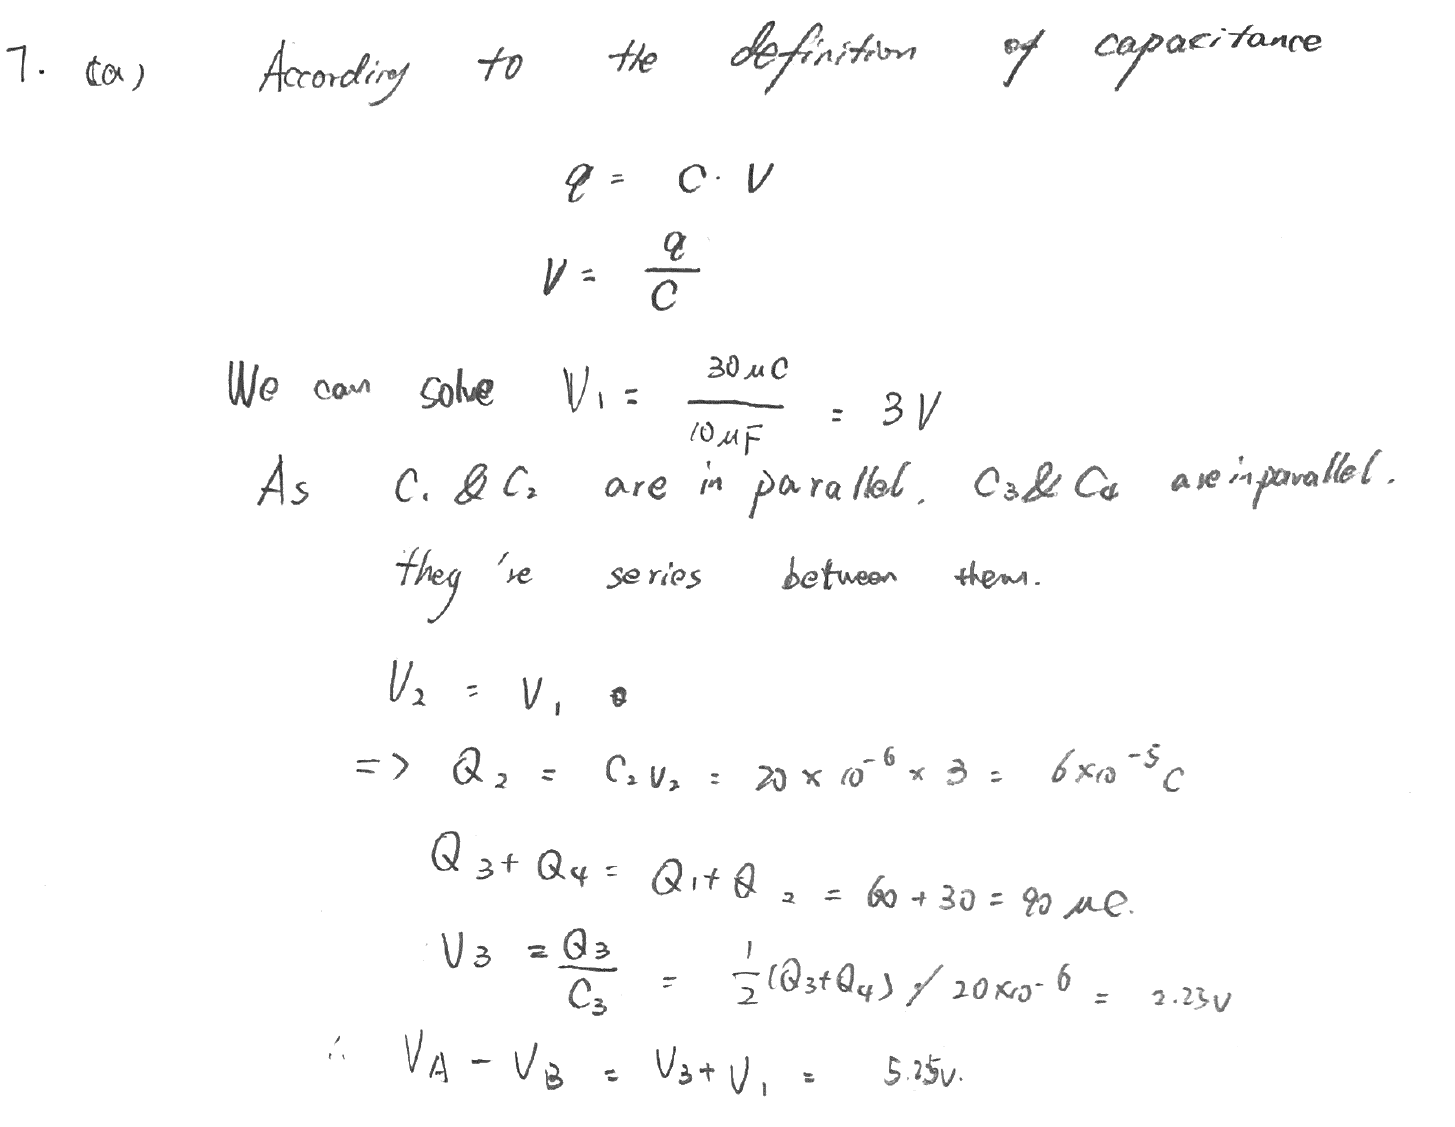 7. (a) According to the definition of capacitance
q = C · V
V = q / C
We can solve V₁ = 30 μC / 10 μF = 3 V
As C₁ & C₂ are in parallel. C₃ & C₄ are in parallel.
they're series between them.
V₂ = V₁
=> Q₂ = C₂V₂ = 20 × 10⁻⁶ × 3 = 6×10⁻⁵ C
Q₃ + Q₄ = Q₁ + Q₂ = 60 + 30 = 90 μC.
V₃ = Q₃ / C₃ = 1/2 (Q₃+Q₄) / 20×10⁻⁶ = 2.25V
∴ V_A - V_B = V₃ + V₁ = 5.25V.